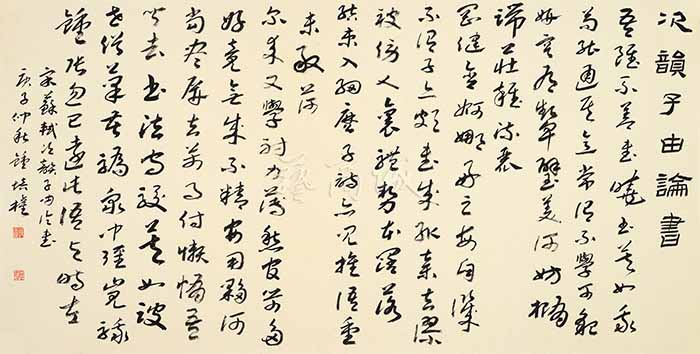 次韻子由論書
吾雖不善書曉書莫如我
苟能通其意常謂不學可貌
妍容有顰璧美何妨橢
端莊雜流麗
剛健含婀娜好之每自譏
不謂子亦頗書成輒棄去繆
被傍人裹體勢本闊落
結束入細麼子詩亦見推語重
未敢荷
尔來又學射力薄愁官笴多
好竟無成不精安用夥何
當盡屏去萬事付懶惰吾
聞古書法守駿莫如跛
世俗筆苦驕衆中強嵬騀
鍾張忽已遠此語與時左
宋蘇軾次韻子由論書
庚子仲秋鍾培權